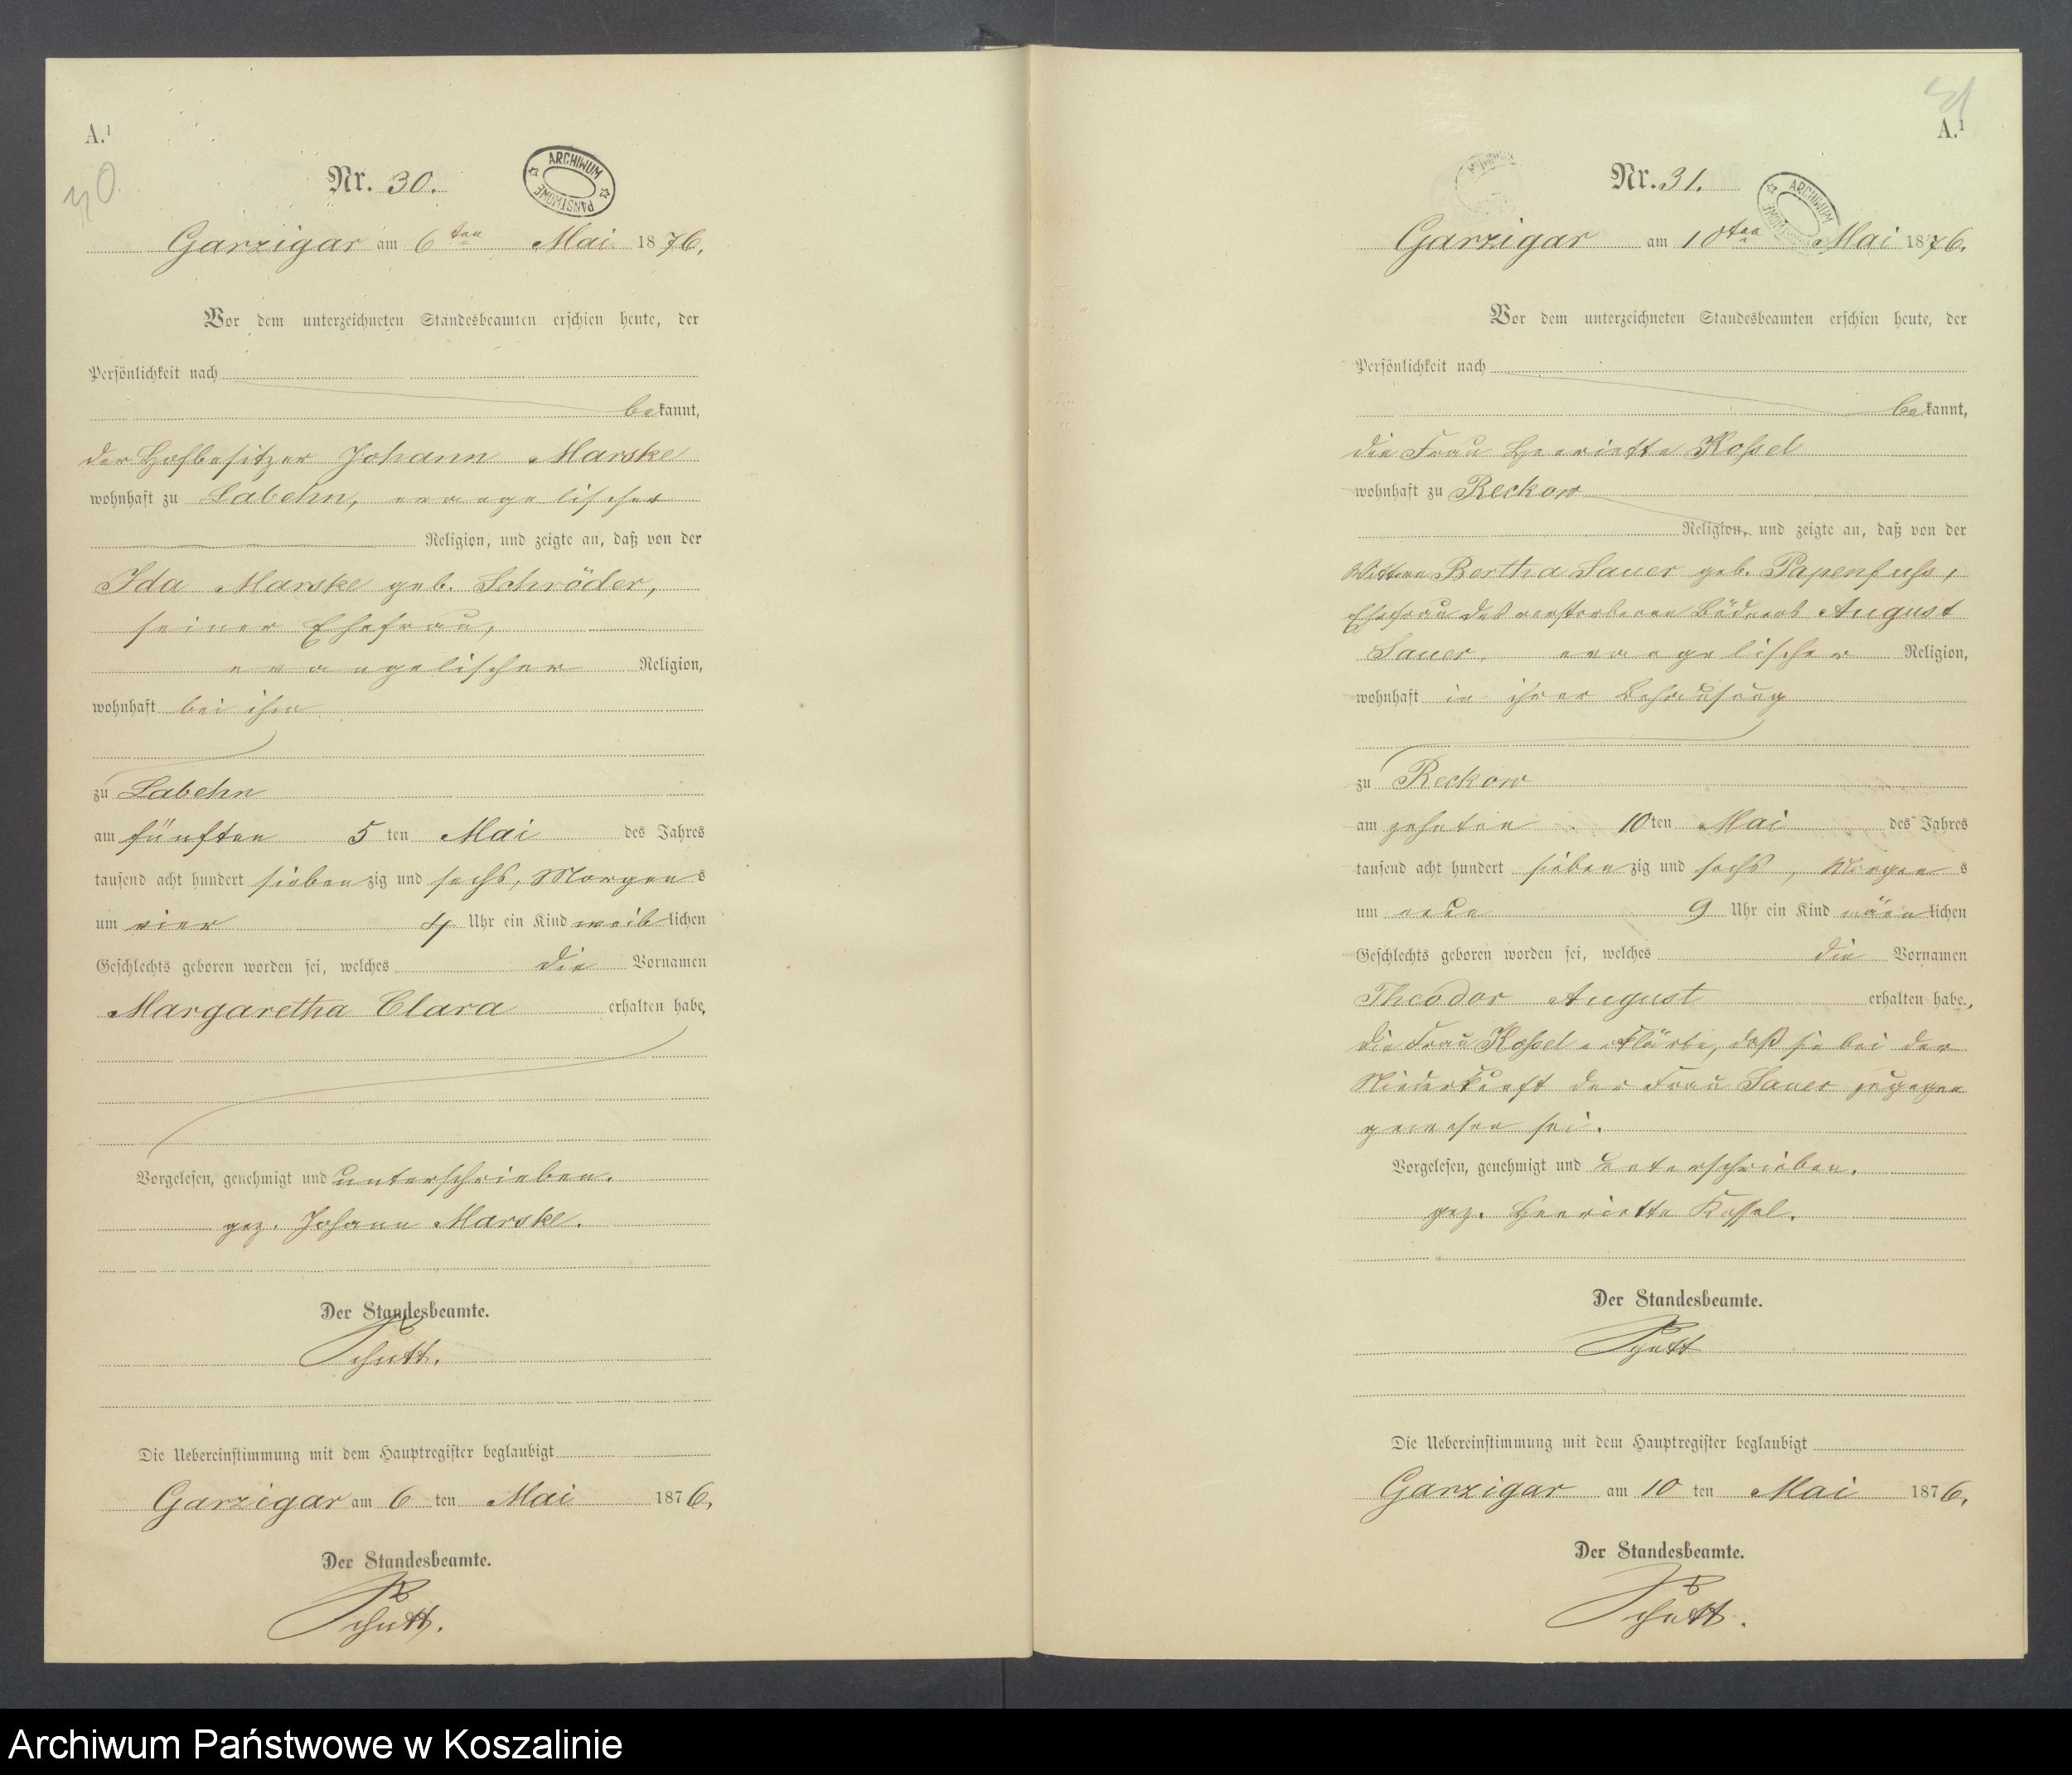 A.¹
30.
Nr. 30.
ARCHIWUM PAŃSTWOWE
Garzigar am 6ten Mai 1876.
Vor dem unterzeichneten Standesbeamten erschien heute, der
Persönlichkeit nach
bekannt,
der Hofbesitzer Johann Marske
wohnhaft zu Labehn, evangelischer
Religion, und zeigte an, daß von der
Ida Marske geb. Schröder,
seiner Ehefrau,
evangelischer Religion,
wohnhaft bei ihm
zu Labehn
am fünften 5 ten Mai des Jahres
tausend acht hundert siebenzig und sechs, Morgens
um vier 4 Uhr ein Kind weiblichen
Geschlechts geboren worden sei, welches die Vornamen
Margaretha Clara erhalten habe,
Vorgelesen, genehmigt und unterschrieben.
gez. Johann Marske.
Der Standesbeamte.
Schutt.
Die Uebereinstimmung mit dem Hauptregister beglaubigt
Garzigar am 6 ten Mai 1876,
Der Standesbeamte.
Schutt.
31
A.¹
Nr. 31.
ARCHIWUM PAŃSTWOWE
Garzigar am 10ten Mai 1876.
Vor dem unterzeichneten Standesbeamten erschien heute, der
Persönlichkeit nach
bekannt,
die Frau Henriette Koßel
wohnhaft zu Reckow
Religion, und zeigte an, daß von der
Wittwe Bertha Sauer geb. Papenfuhs,
Ehefrau des verstorbenen Büdners August
Sauer, evangelischer Religion,
wohnhaft in ihrer Behausung
zu Reckow
am zehnten 10ten Mai des Jahres
tausend acht hundert siebenzig und sechs, Morgens
um neun 9 Uhr ein Kind männlichen
Geschlechts geboren worden sei, welches die Vornamen
Theodor August erhalten habe.,
die Frau Koßel erklärte, daß sie bei der
Niederkunft der Frau Sauer zugegen
gewesen sei.
Vorgelesen, genehmigt und unterschrieben.
gez. Henriette Kossel.
Der Standesbeamte.
Schutt
Die Uebereinstimmung mit dem Hauptregister beglaubigt
Garzigar am 10 ten Mai 1876,
Der Standesbeamte.
Schutt.
Archiwum Państwowe w Koszalinie